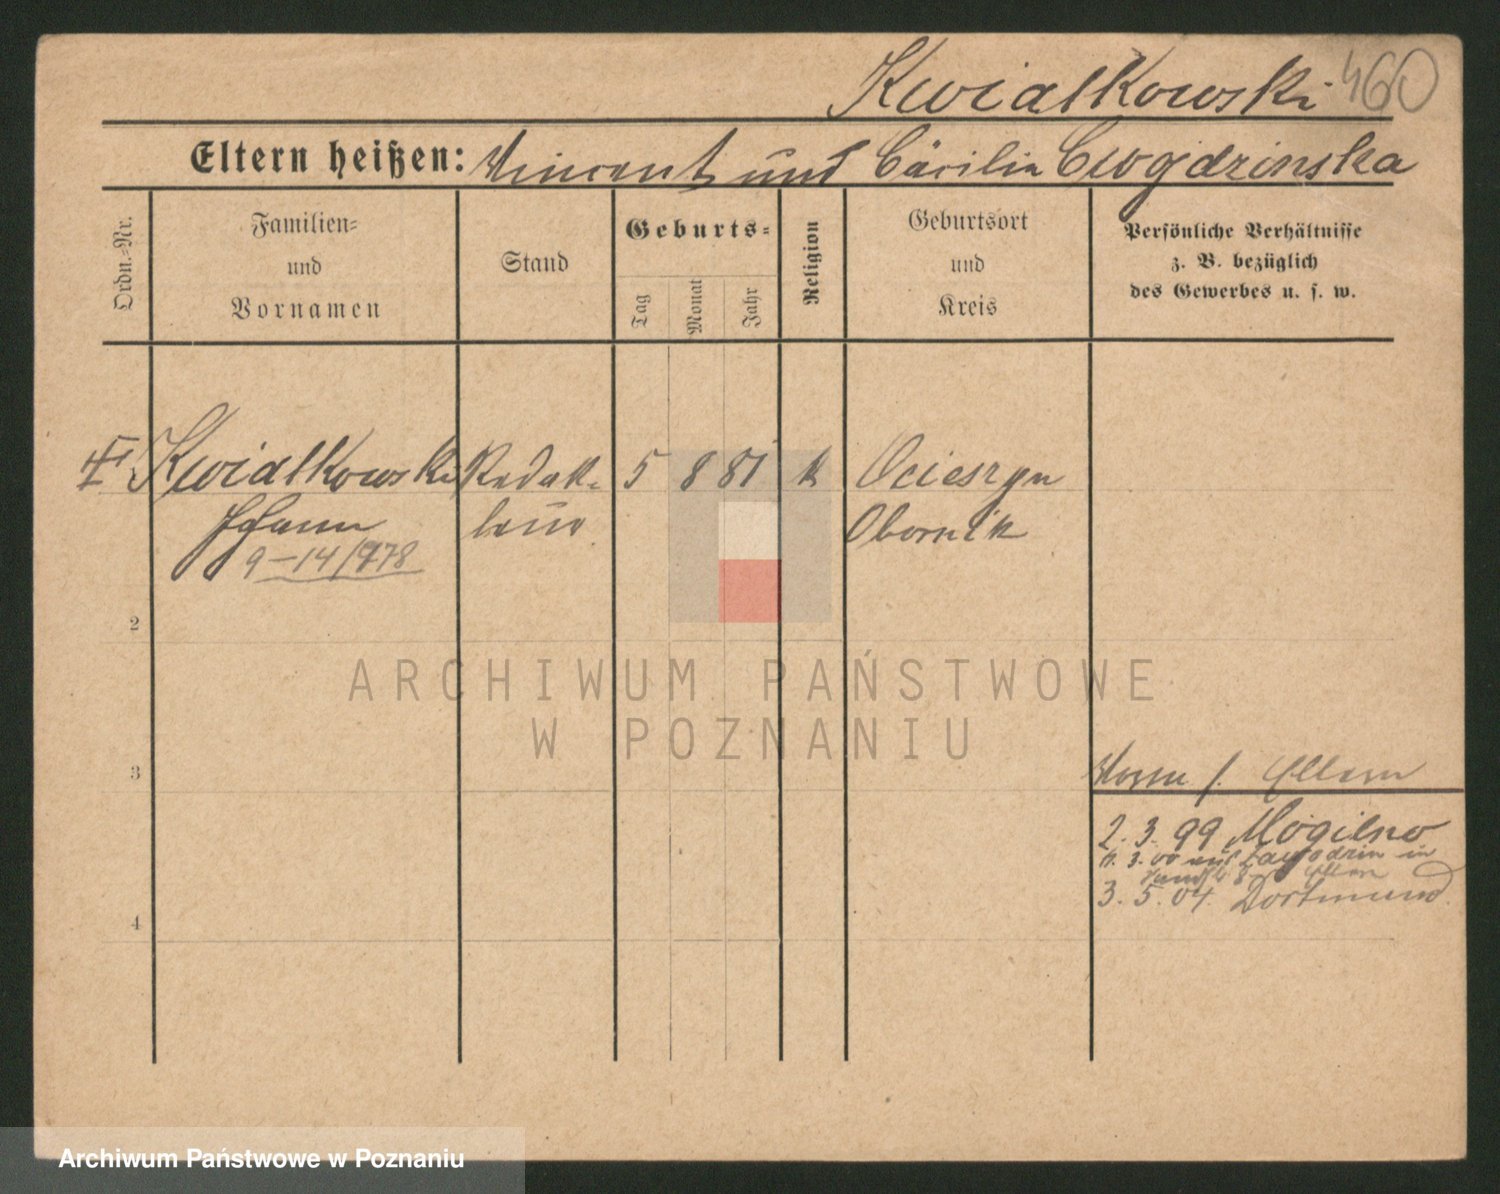 Kwiatkowski 460
Eltern heißen: Vincent und Cäcilia Cwojdzinska
Ordn.-Nr.
Familien-
und
Vornamen
Stand
Geburts-
Tag
Monat
Jahr
Religion
Geburtsort
und
Kreis
Persönliche Verhältnisse
z. B. bezüglich
des Gewerbes u. s. w.
Kwiatkowski Redak- 5 8 81 k Ocieszyn
Johann teur Obornik
9-14/978
2
ARCHIWUM PAŃSTWOWE
W POZNANIU
3
Vorm f. Eltern
2. 3. 99 Mogilno
3. 00 aus in
Eltern
3. 5. 04. Dortmund.
4
Archiwum Państwowe w Poznaniu